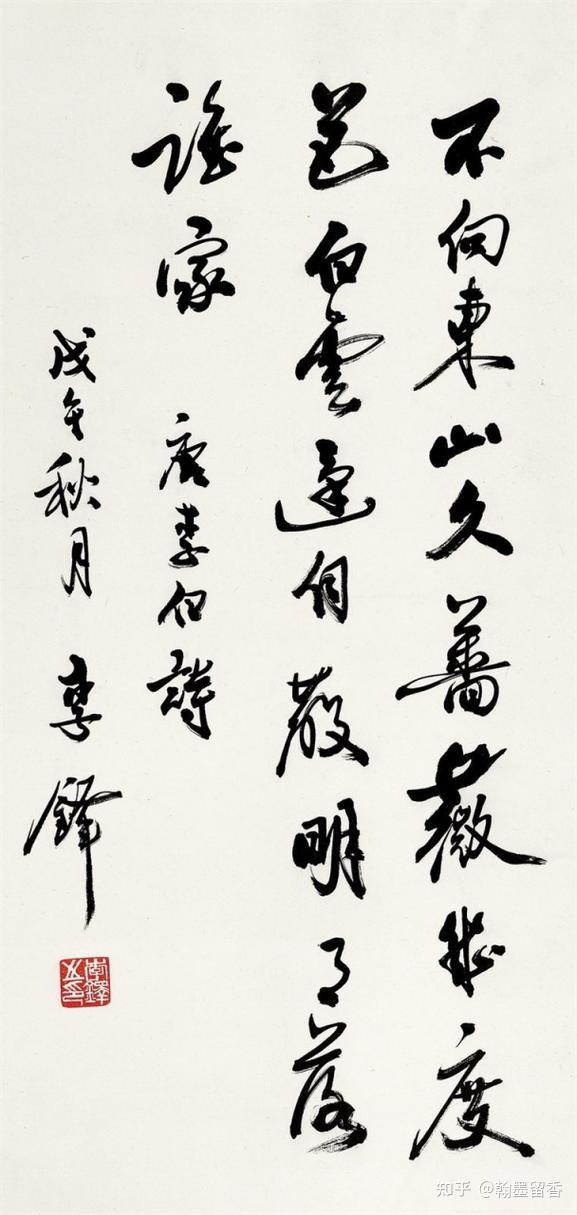 不向東山久薔薇幾度
花白雲還自散明月落
誰家 唐李白詩
戊午秋月 李鐸
李鐸
知乎 @翰墨留香